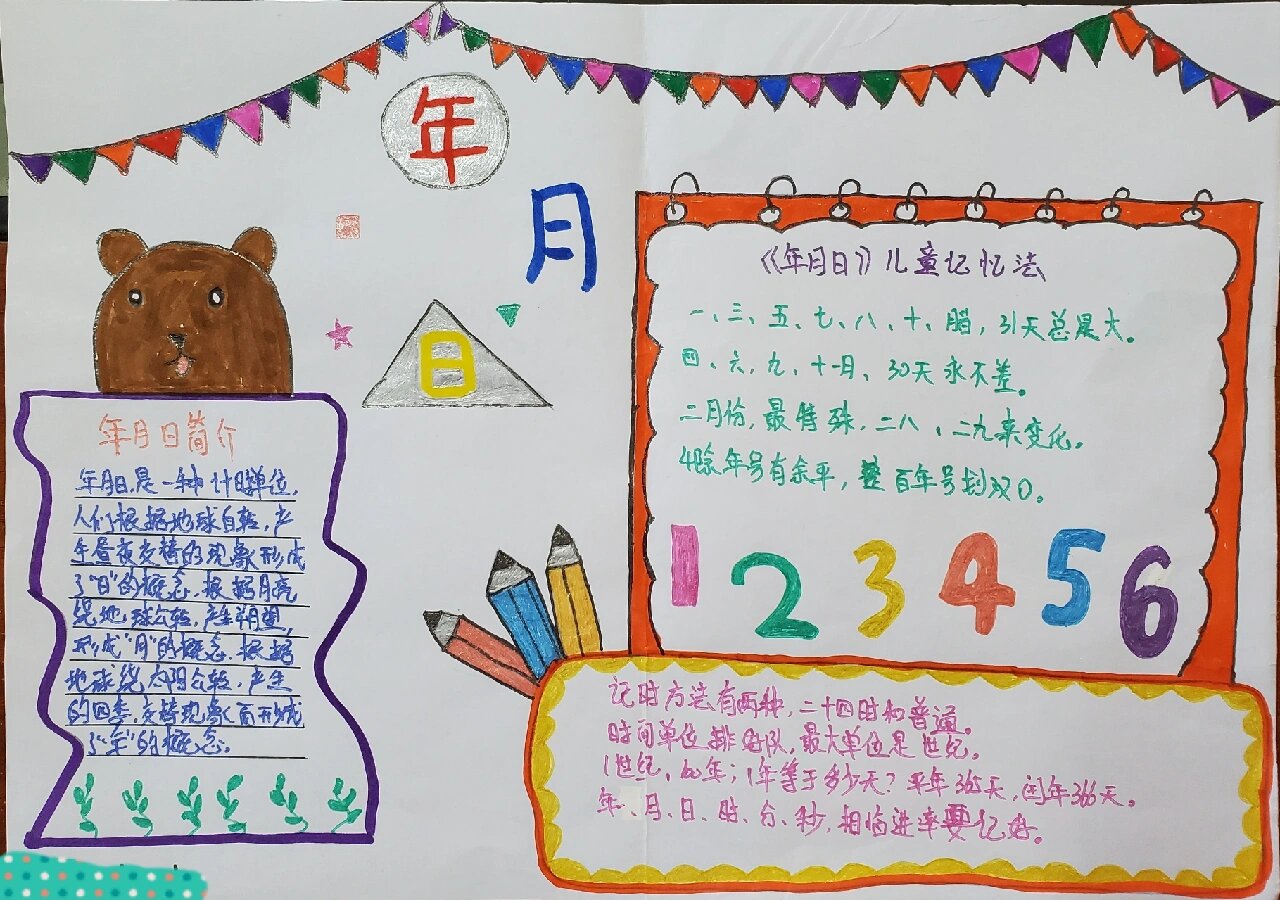 年
月
日
年月日简介
年月日,是一种计时单位,
人们根据地球自转,产
生昼夜交替的现象形成
了"日"的概念.根据月亮
绕地球公转,产生朔望,
形成"月"的概念.根据
地球绕太阳公转,产生
的四季,交替现象而形成
了"年"的概念.
《年月日》儿童记忆法
一、三、五、七、八、十、腊,31天总是大。
四、六、九、十一月、30天永不差。
二月份,最特殊,二八、二九来变化。
4除年号有余平,整百年号划双0。
1 2 3 4 5 6
记时方法有两种,二十四时和普通。
时间单位排好队,最大单位是世纪。
1世纪,100年;1年等于多少天?平年365天,闰年366天。
年、月、日、时、分、秒,相临进率要忆好。